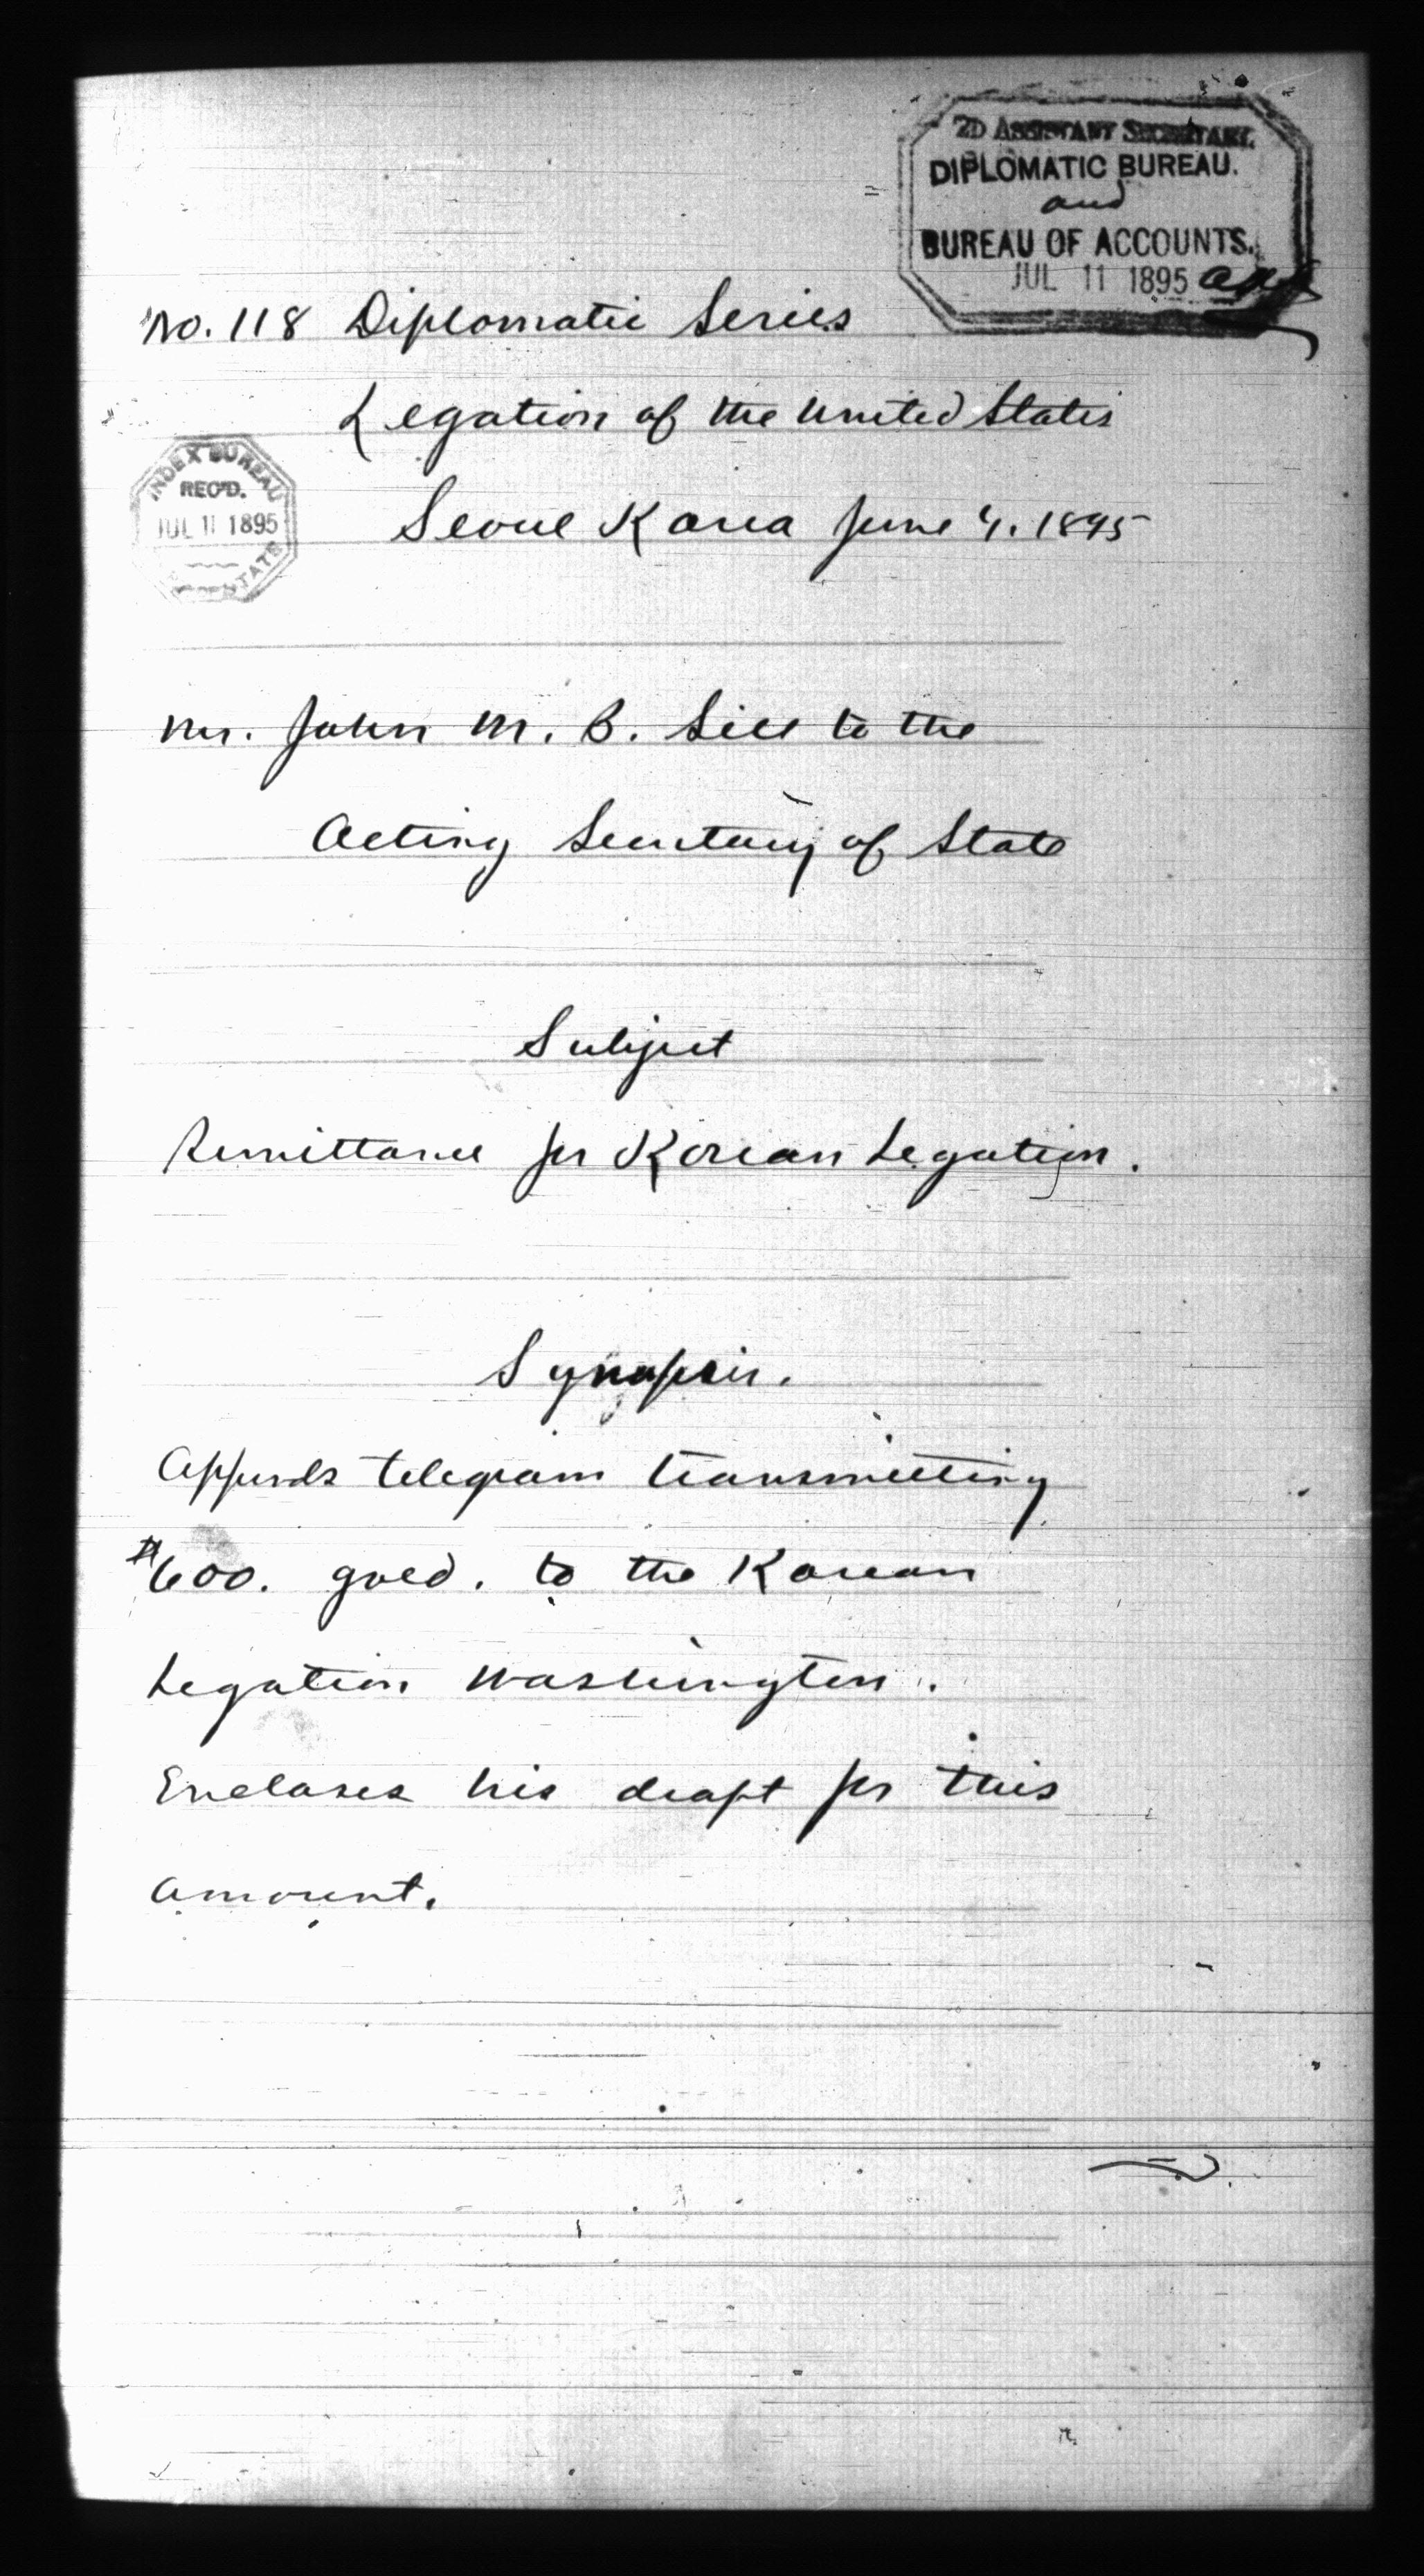 2D ASSISTANT SECRETARY.
DIPLOMATIC BUREAU.
and
BUREAU OF ACCOUNTS.
JUL 11 1895
No. 118 Diplomatic Series
Legation of the United States
INDEX BUREAU
REC'D.
JUL 11 1895
STATE
Seoul Korea June 1895
Mr. John M. B. Sill to the
Acting Secretary of State
Subject
Remittance for Korean Legation.
Synopsis.
Appends telegram transmitting
$600. gold. to the Korean
Legation Washington.
Encloses his draft for this
amount.